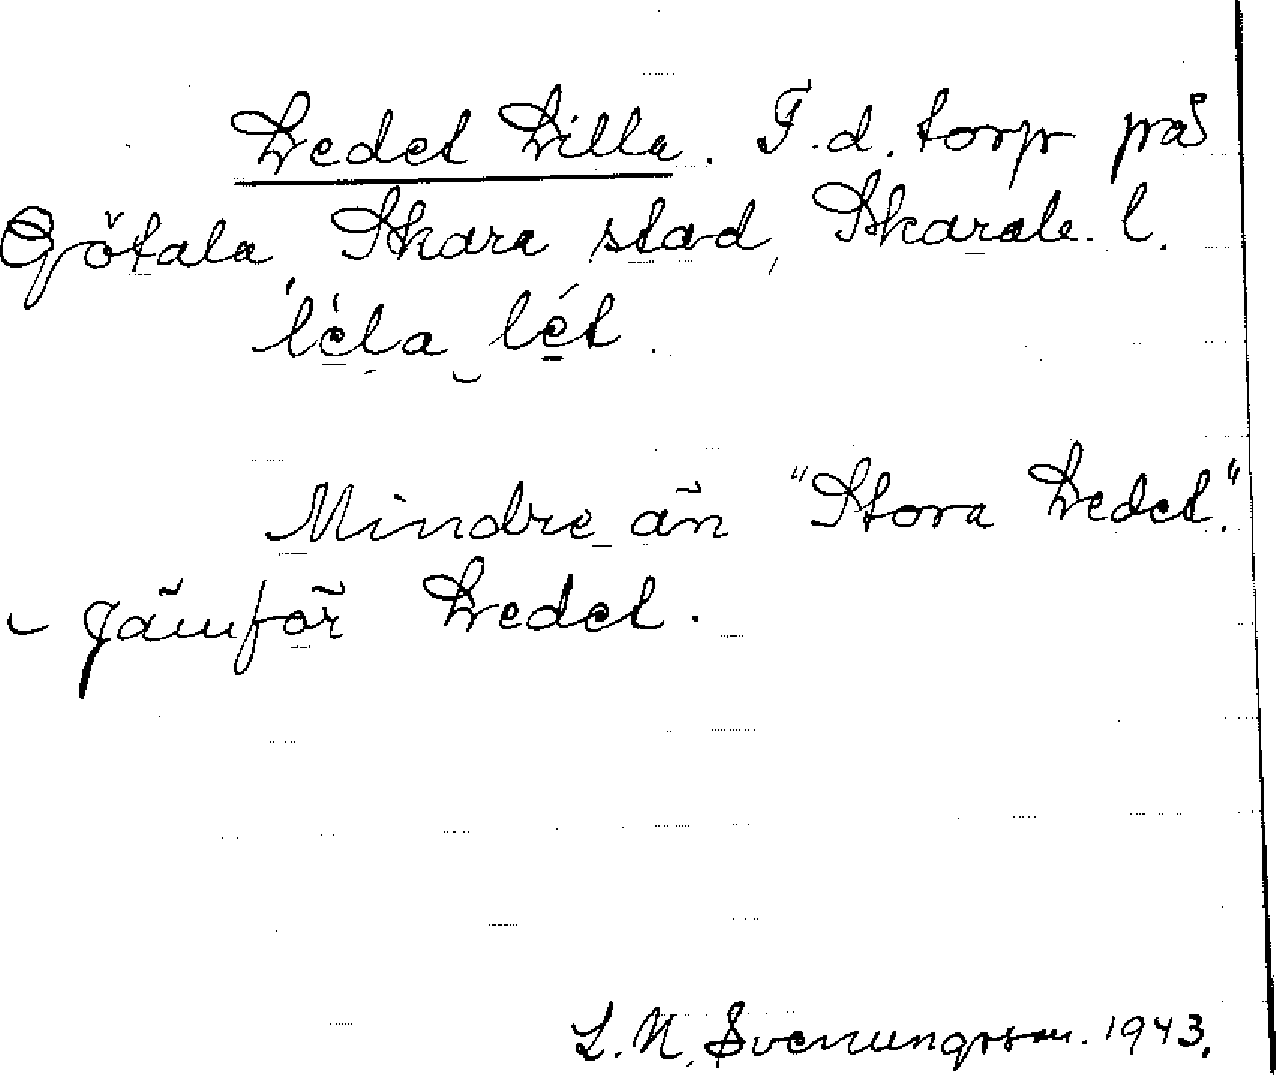 Ledet Lilla. F.d. torp på
Götala, Skara stad, Skarab. l.
Mindre än "Stora Ledet".
- Jämför Ledet.
L. N. Svenungsson. 1943.